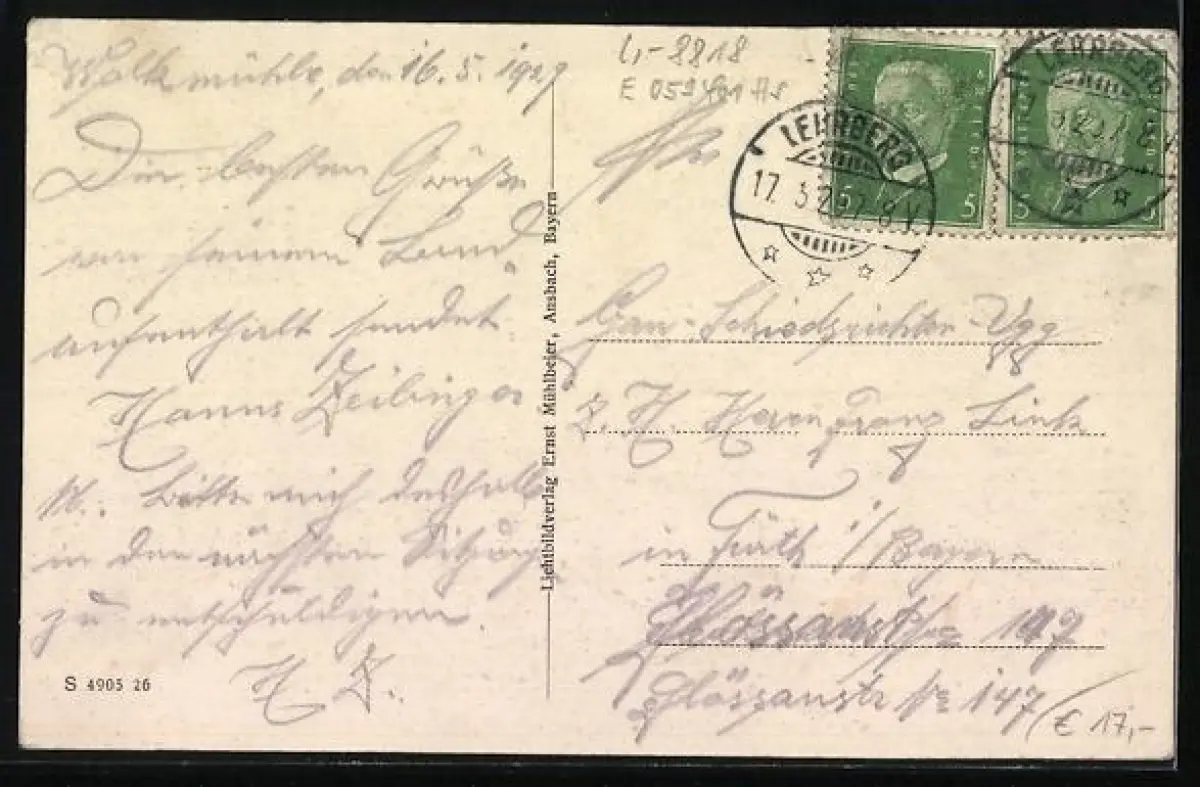 mühle, den 16. 5. 1929
Die besten Grüße
von seinem Land
aufenthalt sendet
Hanns Zeilinger
N. Bitte mich deshalb
in der nächsten Sitzung
zu entschuldigen.
H. Z.
S 4905 26
Lichtbildverlag Ernst Mühlbeier, Ansbach, Bayern
8818
E
LEHRBERG
17.
5
5
LEHRBERG
5
Gau-Schiedsrichter-Vgg
z. H. Herrn Franz Link
in Fürth i/Bayern
147
Flössaustr No 147
€ 17,-